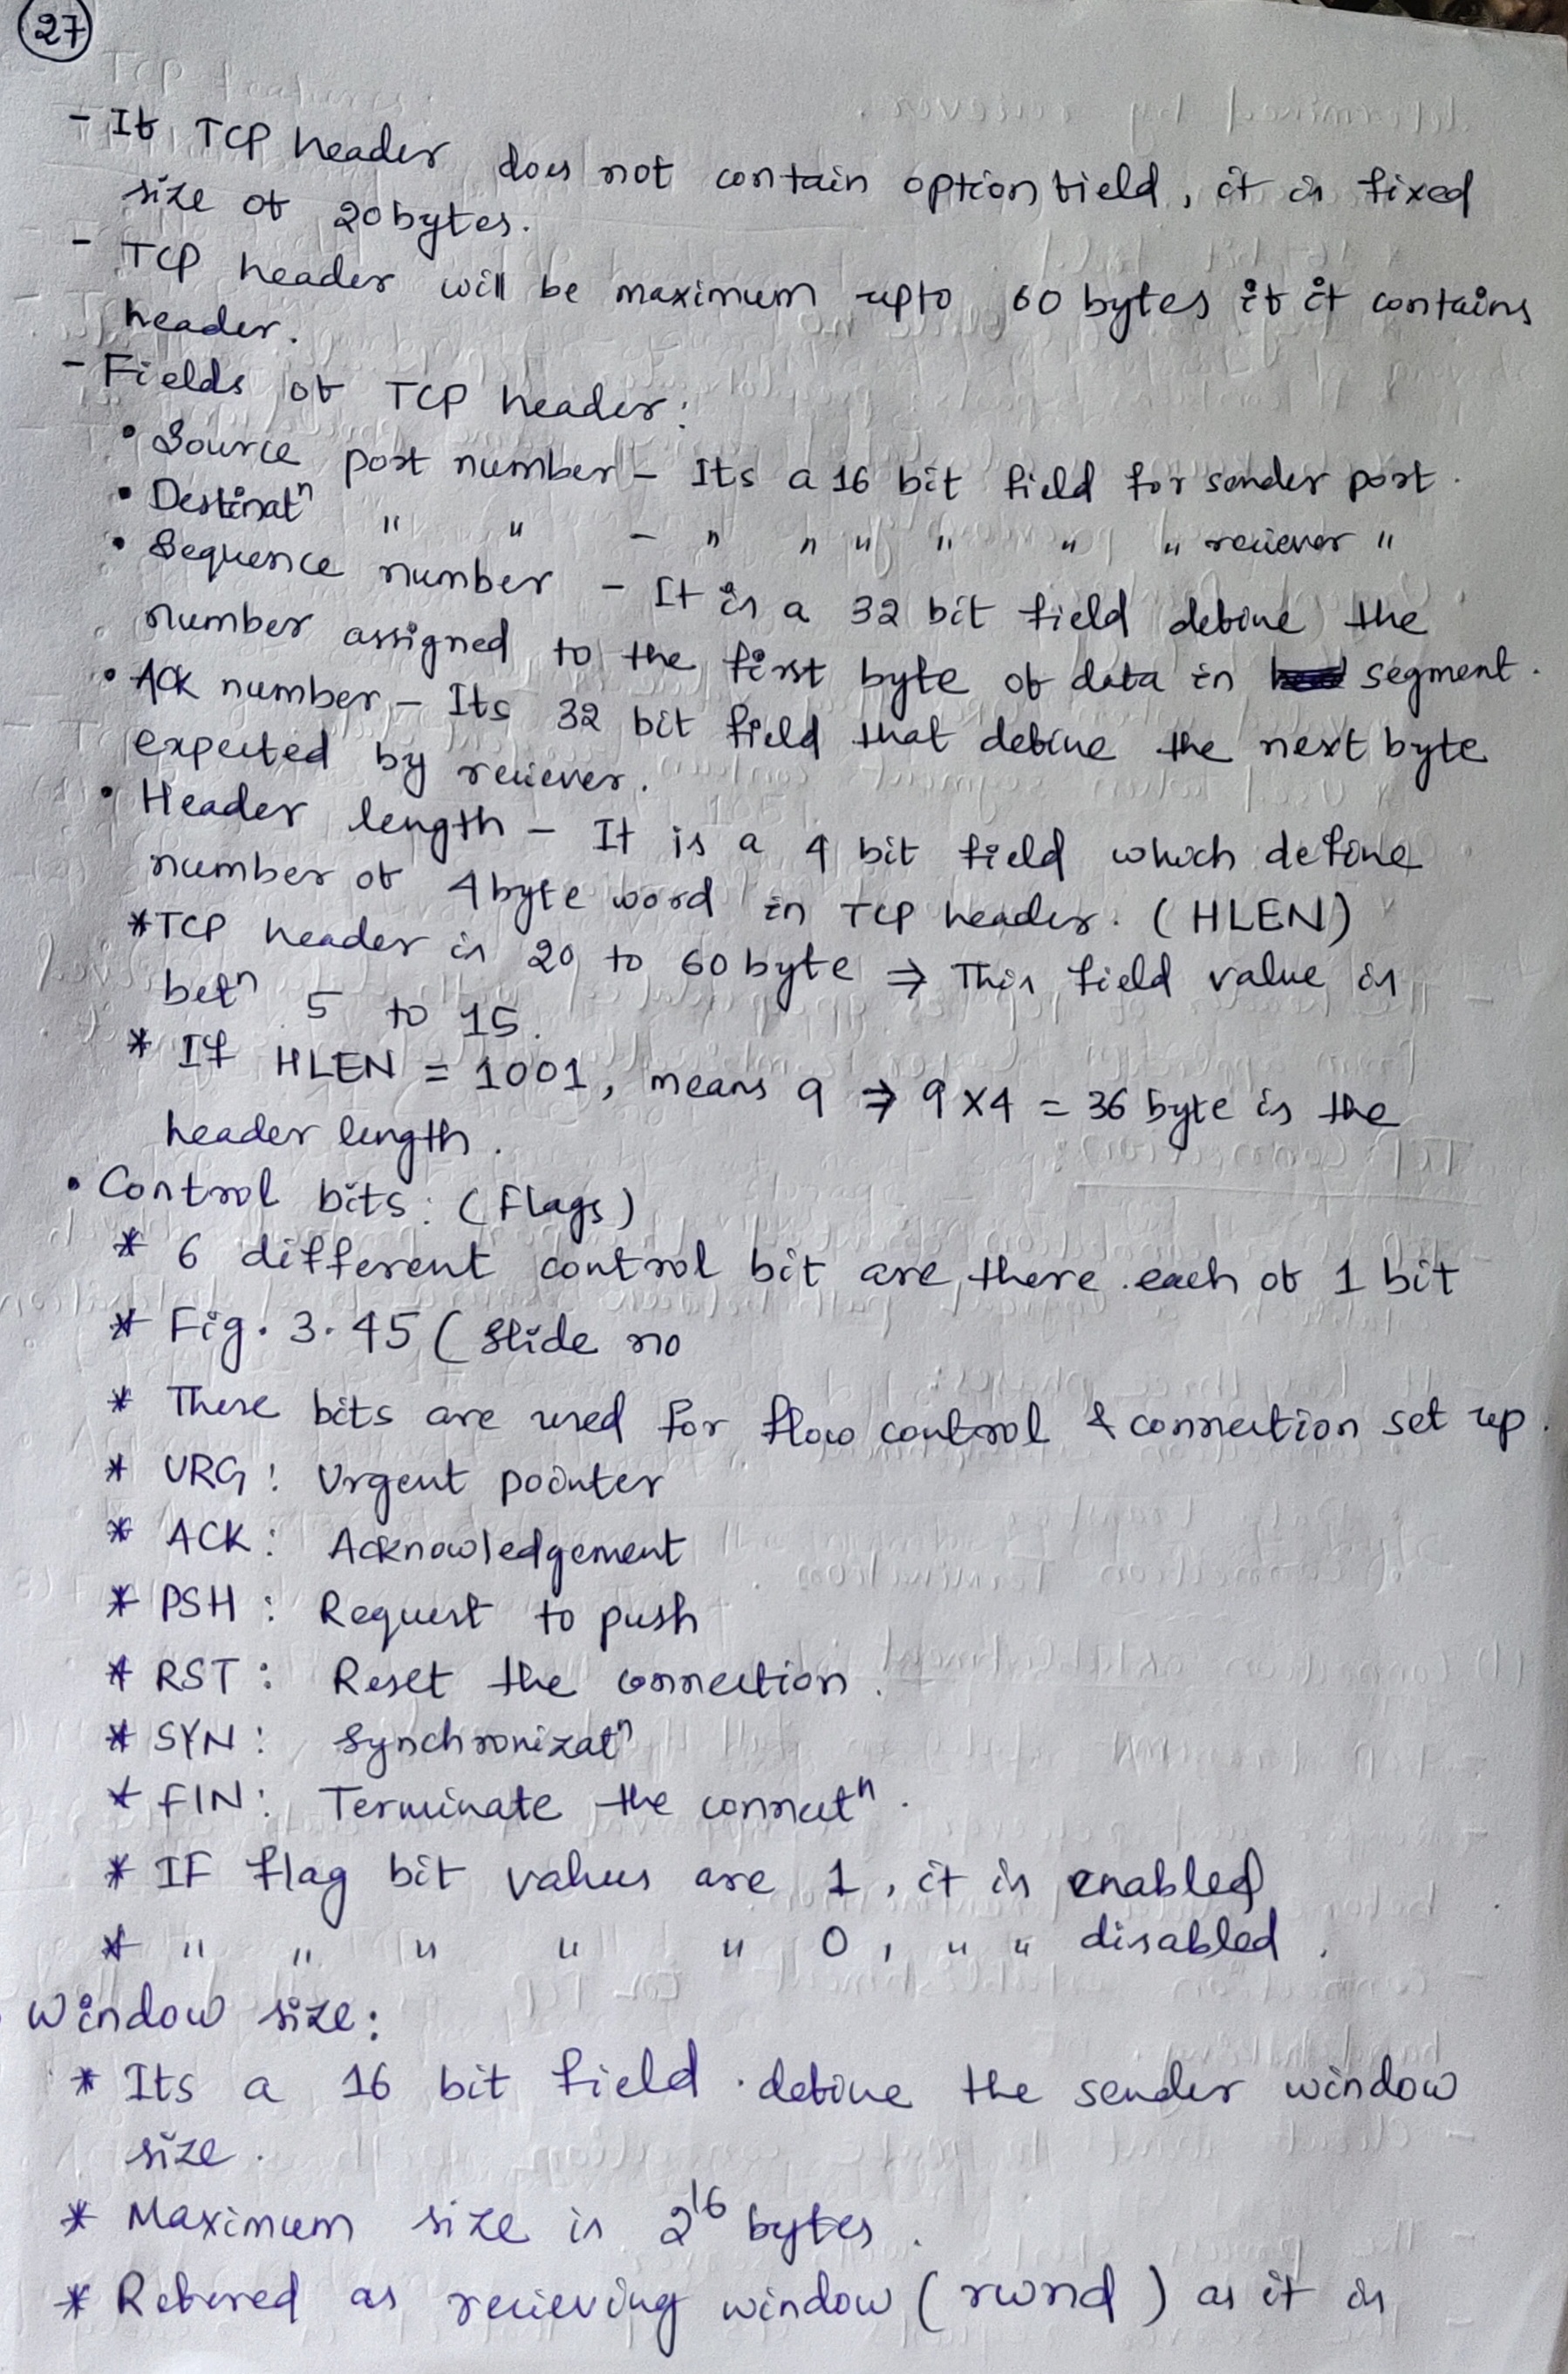 27
- If TCP header does not contain option field, it is fixed
size of 20 bytes.
- TCP header will be maximum upto 60 bytes if it contains
header.
- Fields of TCP header:
• Source port number - Its a 16 bit field for sender port.
• Destinatⁿ " " - " " " " " " reciever "
• Sequence number - It is a 32 bit field define the
number assigned to the first byte of data in segment.
• ACK number - Its 32 bit field that define the next byte
expected by reciever.
• Header length - It is a 4 bit field which define
number of 4 byte word in TCP header. (HLEN)
* TCP header is 20 to 60 byte ⇒ This field value is
betⁿ 5 to 15.
* If HLEN = 1001, means 9 ⇒ 9 x 4 = 36 byte is the
header length.
• Control bits: (Flags)
* 6 different control bit are there each of 1 bit
* Fig. 3.45 (Slide no
* These bits are used for flow control & connection set up.
* URG: Urgent pointer
* ACK: Acknowledgement
* PSH: Request to push
* RST: Reset the connection.
* SYN: Synchronizatⁿ
* FIN: Terminate the connectⁿ.
* IF flag bit values are 1, it is enabled
* " " " " " 0, " " disabled.
Window size:
* Its a 16 bit field define the sender window
size.
* Maximum size is 2¹⁶ bytes.
* Refered as recieving window (rwnd) as it is